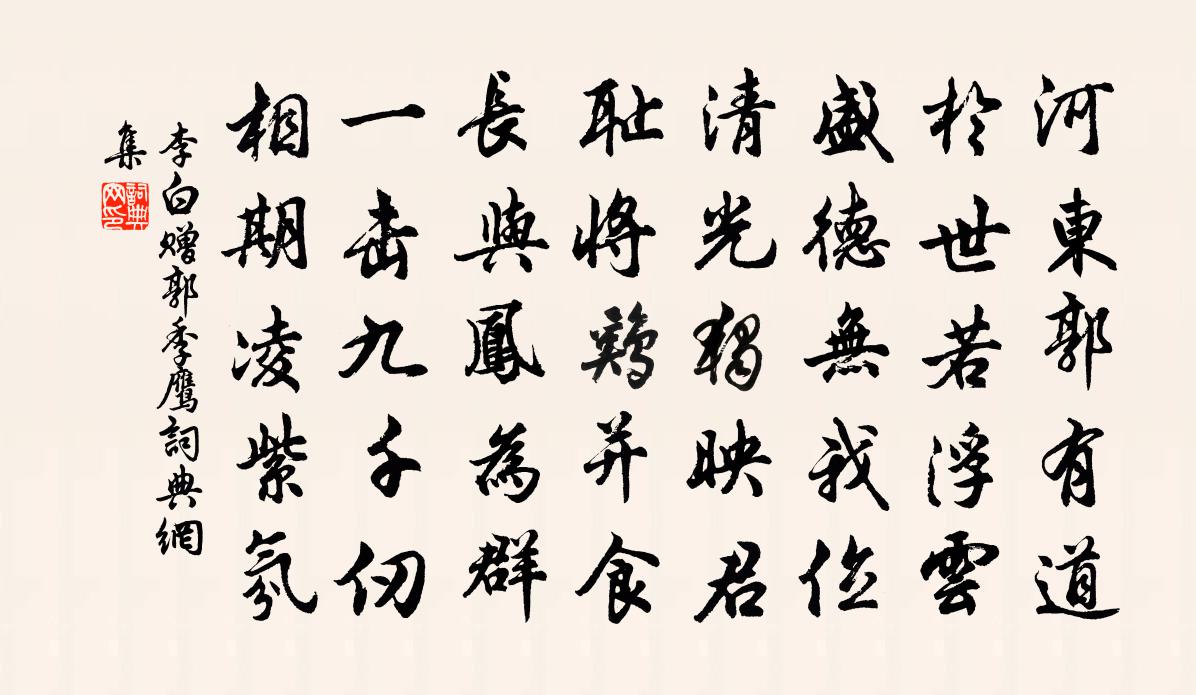 河東郭有道
於世若浮雲
盛德無我位
清光獨映君
恥將鷄并食
長與鳳為群
一击九千仞
相期凌紫氛
李白赠郭季鹰詞典網
集
詞典
网印